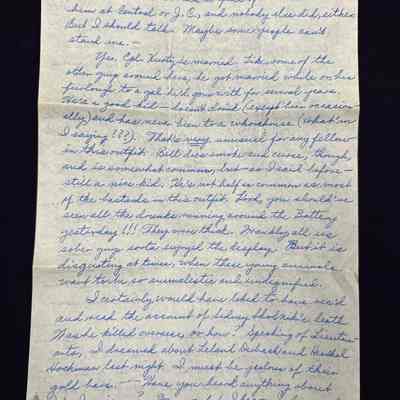 him at Central or J.C., and nobody else did, either.
But I should talk. Maybe some people can't
stand me. —
Yes, Cpl. married. Like some of the
other guys around here, he got married while on his
furlough to a gal he'd gone with for several years.
He's a good kid — doesn't drink (except beer occasion-
ally) and has never been to a whorehouse (what'm
I saying???). That's very unusual for any fellow
in this outfit. Bill does smoke and curse, though,
and is somewhat common, but — as I said before —
still a nice kid. He's not half as common as most
of the bastards in this outfit. Lord, you should've
seen all the drunks running around the Battery
yesterday!!! They were thick. Frankly, all us
sober guys sorta enjoyed the display. But it is
disgusting at times, when these young animals
want to be so animalistic and undignified.
I certainly would have liked to have rec'd
and read the account of Sidney death
Was he killed overseas, or how? Speaking of Lieuten-
ants, I dreamed about Leland and
last night. I must be jealous of their
gold bars. — Have you heard anything about